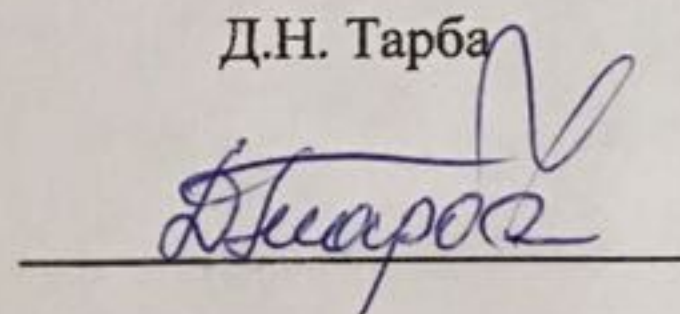 Д.Н. Тарба